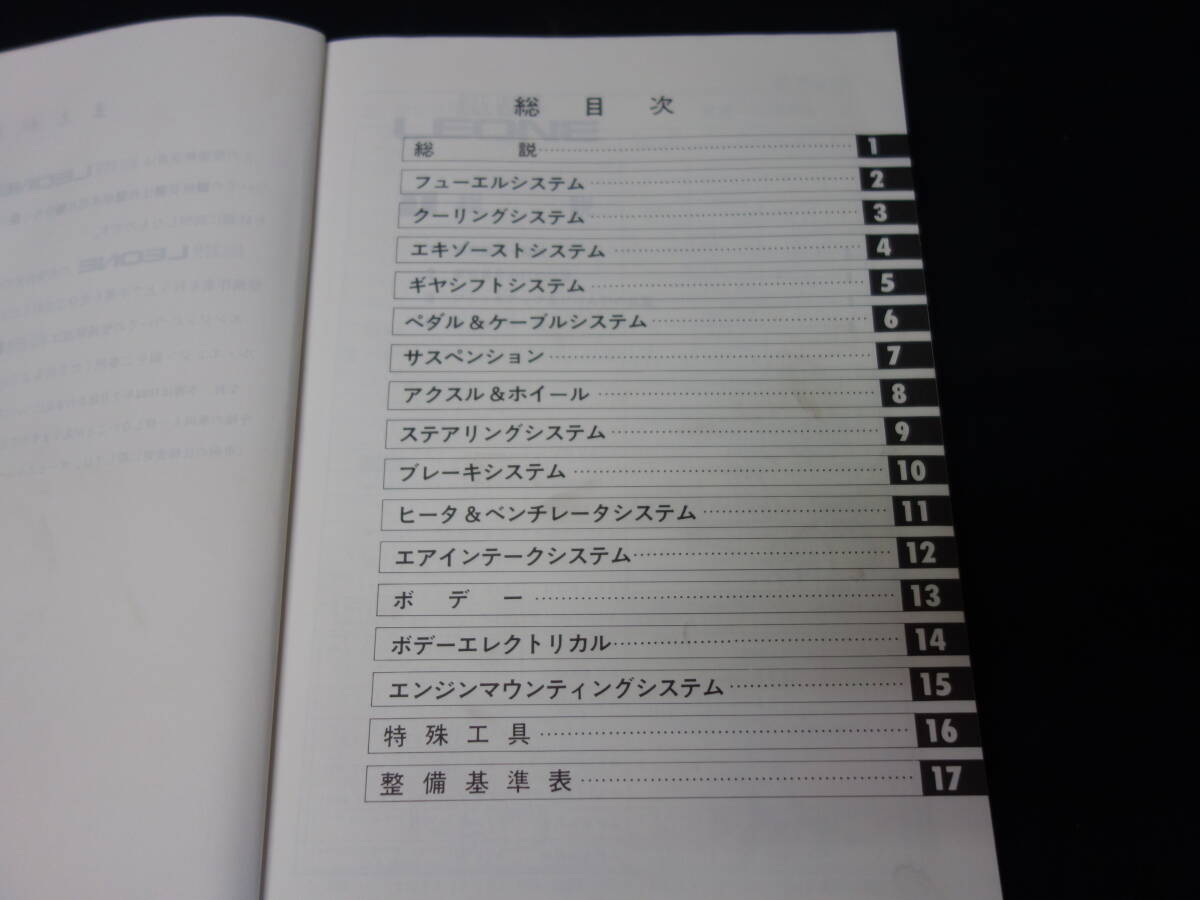 総目次
総説 1
フューエルシステム 2
クーリングシステム 3
エキゾーストシステム 4
ギヤシフトシステム 5
ペダル&ケーブルシステム 6
サスペンション 7
アクスル&ホイール 8
ステアリングシステム 9
ブレーキシステム 10
ヒータ&ベンチレータシステム 11
エアインテークシステム 12
ボデー 13
ボデーエレクトリカル 14
エンジンマウンティングシステム 15
特殊工具 16
整備基準表 17